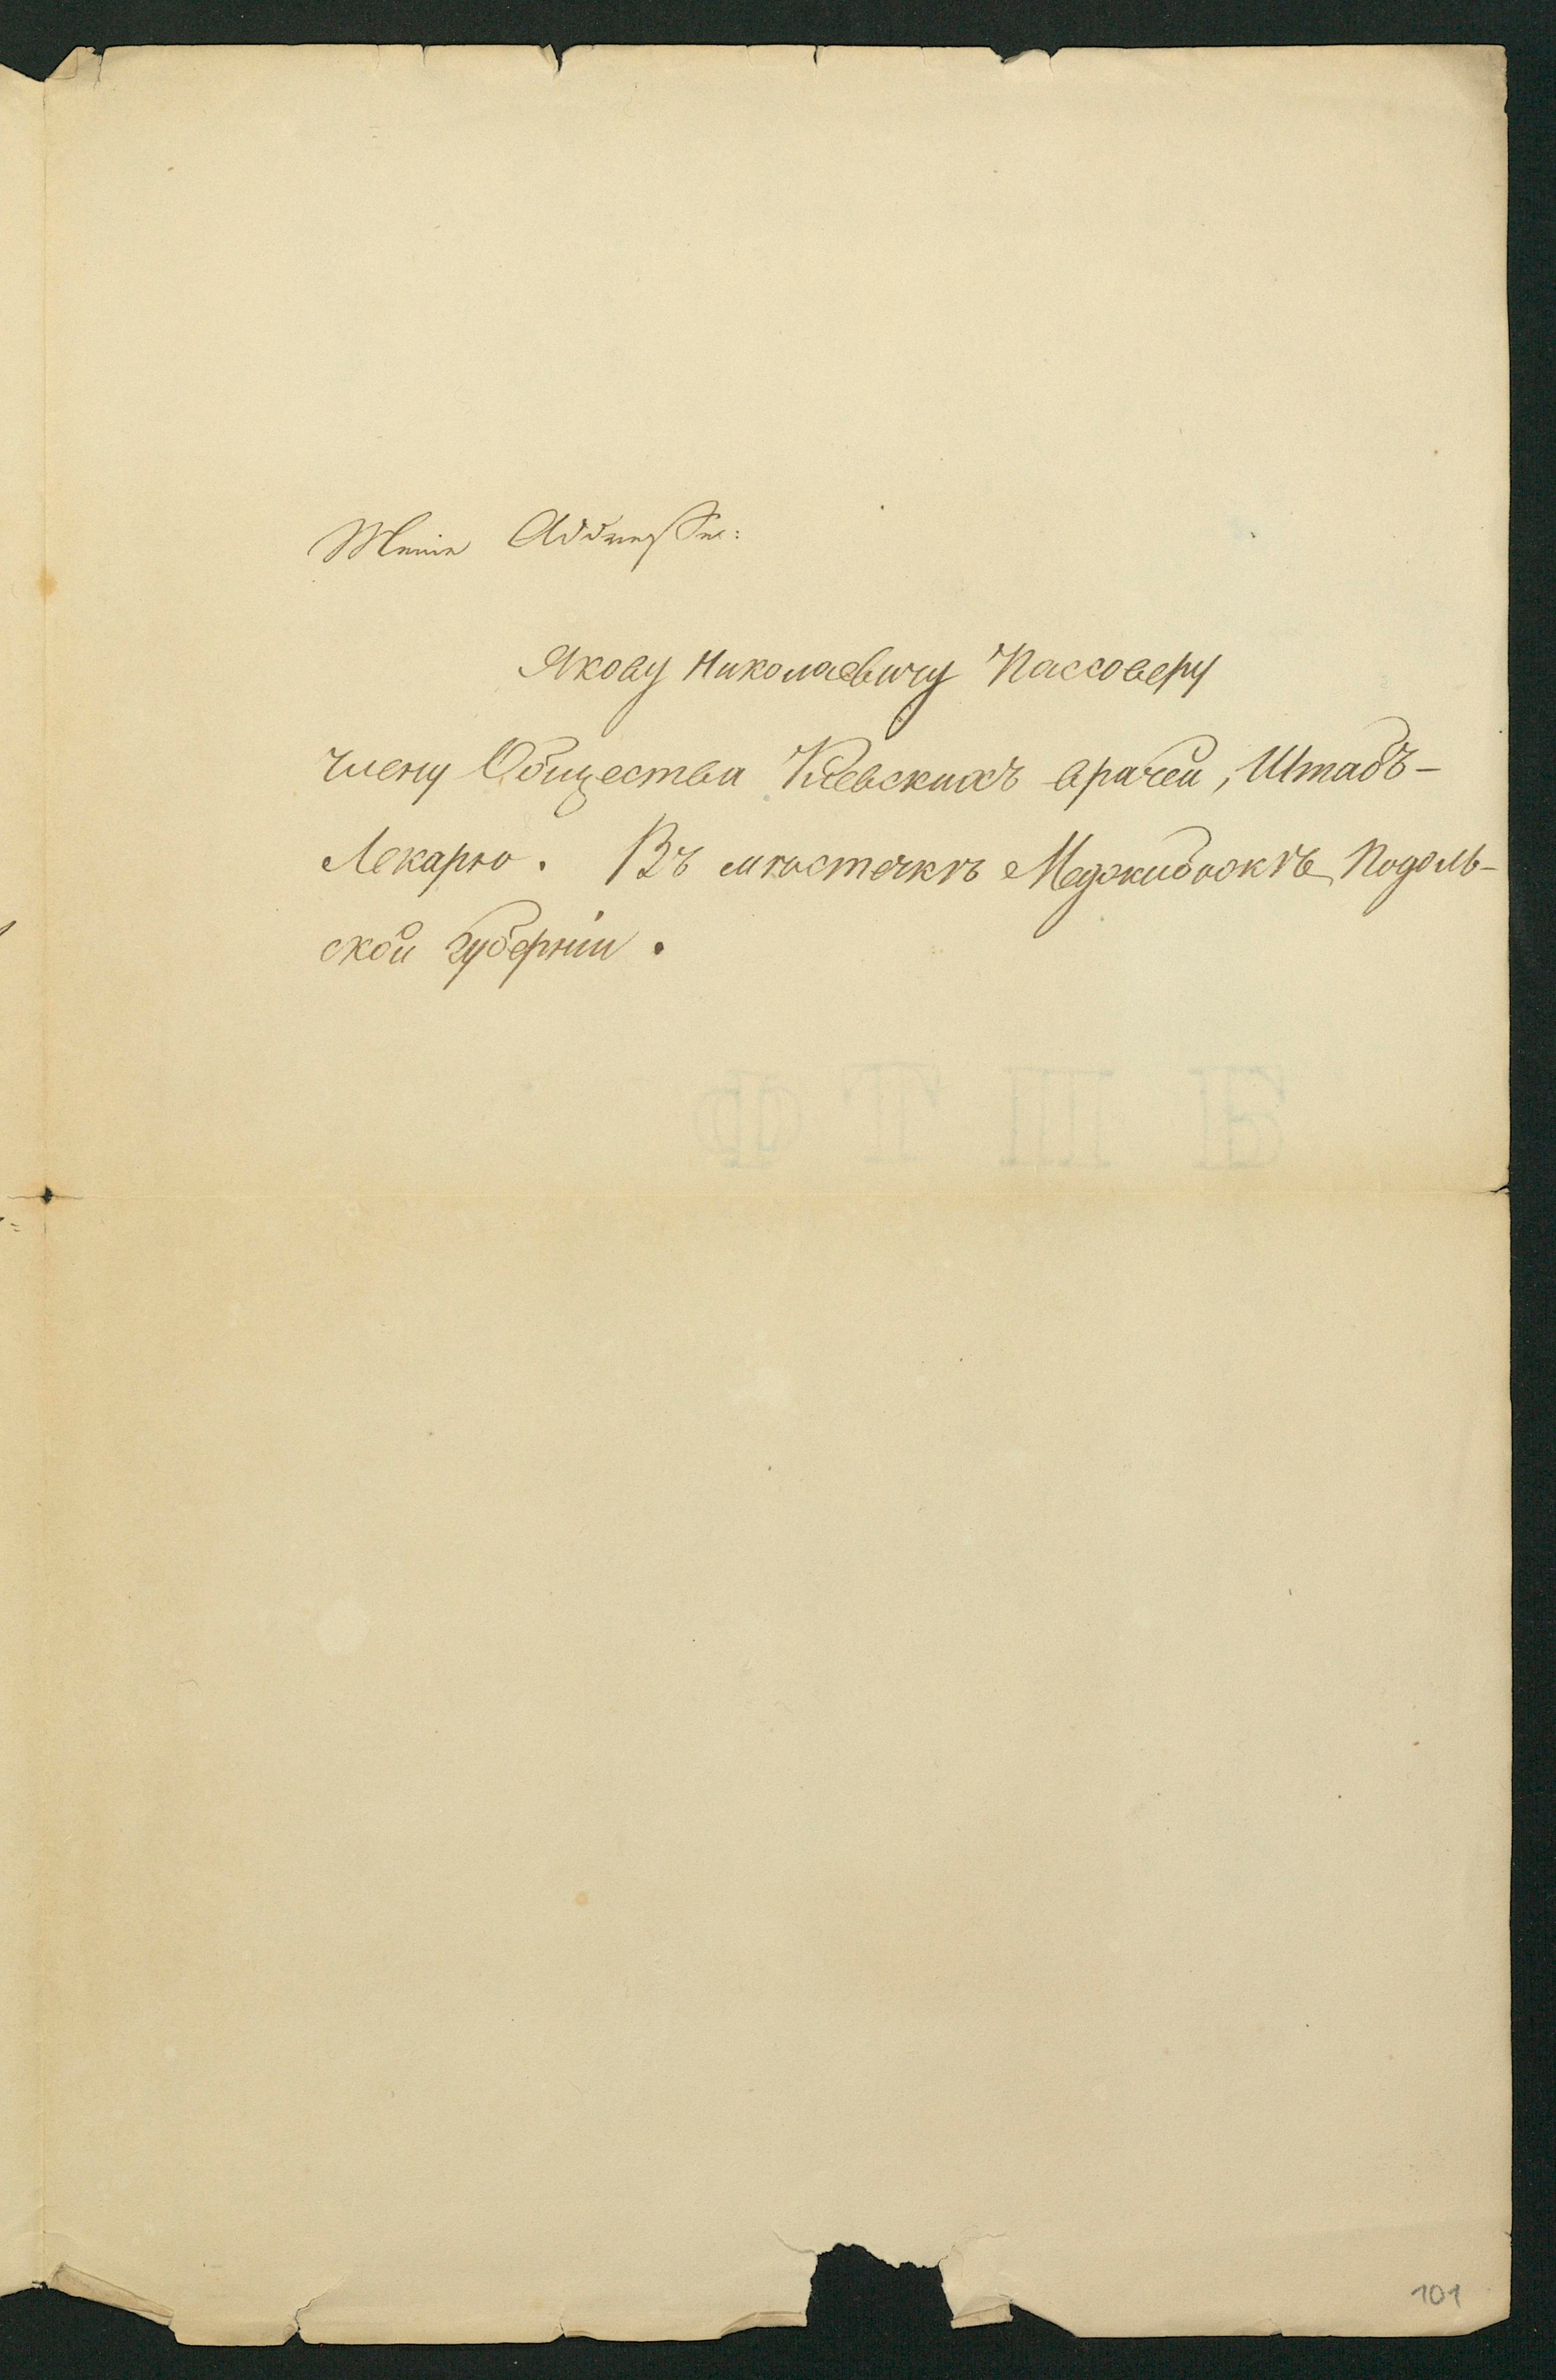 Meine Addresse:
Якову Николаевичу Пассоверу
члену Общества Кіевскихъ врачей, Штабъ-
Лекарю. Въ мѣстечкѣ Меджибожѣ Подоль-
ской губерніи.
101